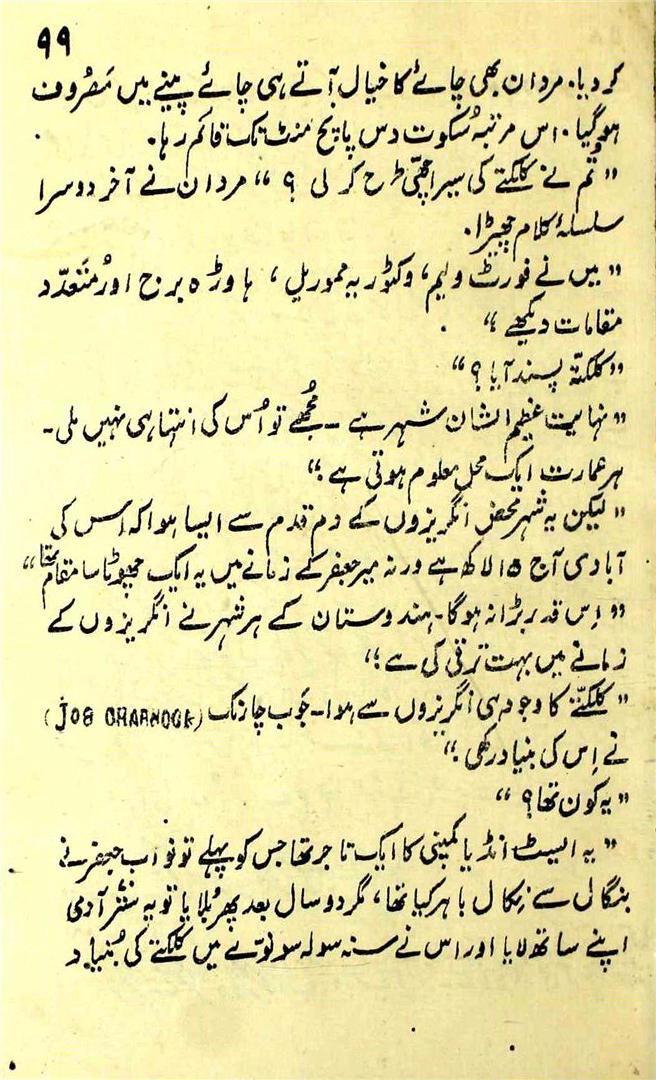 ۹۹
کر دیا۔ مردان بھی چائے کا خیال آتے ہی چائے پینے میں مَصْرُوف
ہوگیا۔ اس مرتبہ سُکوت دس پانچ منٹ تک قائم رہا۔
”تُم نے کلکتے کی سیر اچھّی طرح کر لی ؟“ مردان نے آخر دوسرا
سلسلۂ کلام چھیڑا۔
”میں نے فورٹ ولیم، وکٹوریہ مموریل، ہاوڑہ برج اور مُتَعدّد
مقامات دیکھے“
”کلکتّہ پسند آیا؟“
”نہایت عظیم الشان شہر ہے ۔ مُجھے تو اُس کی انتہا ہی نہیں ملی۔
ہر عمارت ایک محل معلوم ہوتی ہے۔“
”لیکن یہ شہر محض انگریزوں کے دم قدم سے ایسا ہوا کہ اِس کی
آبادی آج ۱۵ لاکھ ہے ورنہ میر جعفر کے زمانے میں یہ ایک چھوٹا سا مقام تھا“
”اِس قدر بڑا نہ ہوگا۔ ہندوستان کے ہر شہر نے انگریزوں کے
زمانے میں بہت ترقی کی ہے۔“
”کلکتّے کا وجود ہی انگریزوں سے ہوا۔ جَوب چارنک (JOB CHARNOCK)
نے اِس کی بنیاد رکھی۔“
”یہ کون تھا؟“
”یہ ایسٹ انڈیا کمپنی کا ایک تاجر تھا جس کو پہلے تو نواب جعفر نے
بنگال سے نِکال باہر کیا تھا، مگر دو سال بعد پھر بُلایا تو یہ ستّر آدمی
اپنے ساتھ لایا اور اس نے سنہ سولہ سو نوّے میں کلکتّے کی بُنیاد